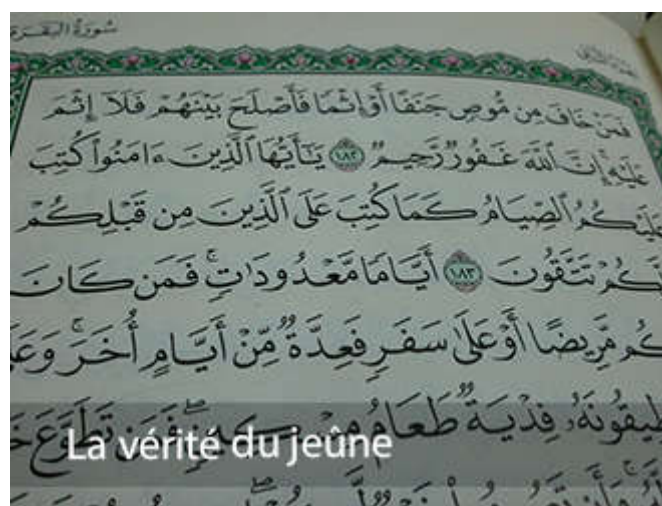 سُورَةُ البَقَرَةِ
فَمَنْ خَافَ مِن مُّوصٍ جَنَفًا أَوْ إِثْمًا فَأَصْلَحَ بَيْنَهُمْ فَلَآ إِثْمَ
عَلَيْهِ إِنَّ ٱللَّهَ غَفُورٌ رَّحِيمٌ ١٨٢ يَـٰٓأَيُّهَا ٱلَّذِينَ ءَامَنُوا۟ كُتِبَ
عَلَيْكُمُ ٱلصِّيَامُ كَمَا كُتِبَ عَلَى ٱلَّذِينَ مِن قَبْلِكُمْ
لَّكُمْ تَتَّقُونَ ١٨٣ أَيَّامًا مَّعْدُودَٰتٍ ۚ فَمَن كَانَ
كُم مَّرِيضًا أَوْ عَلَىٰ سَفَرٍ فَعِدَّةٌ مِّنْ أَيَّامٍ أُخَرَ ۚ وَعَ
طِيقُونَهُۥ فِدْيَةٌ طَعَامُ مِسْكِينٍ ۖ فَمَن تَطَوَّعَ خَ
La vérité du jeûne